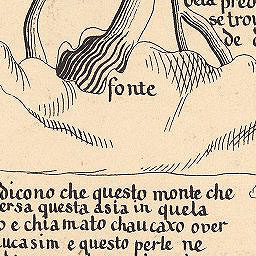 dela pred
se troy
de
fonte
dicono che questo monte che
ersa questa asia in quela
o e chiamato chaucaxo over
ucasim e questo perle ne